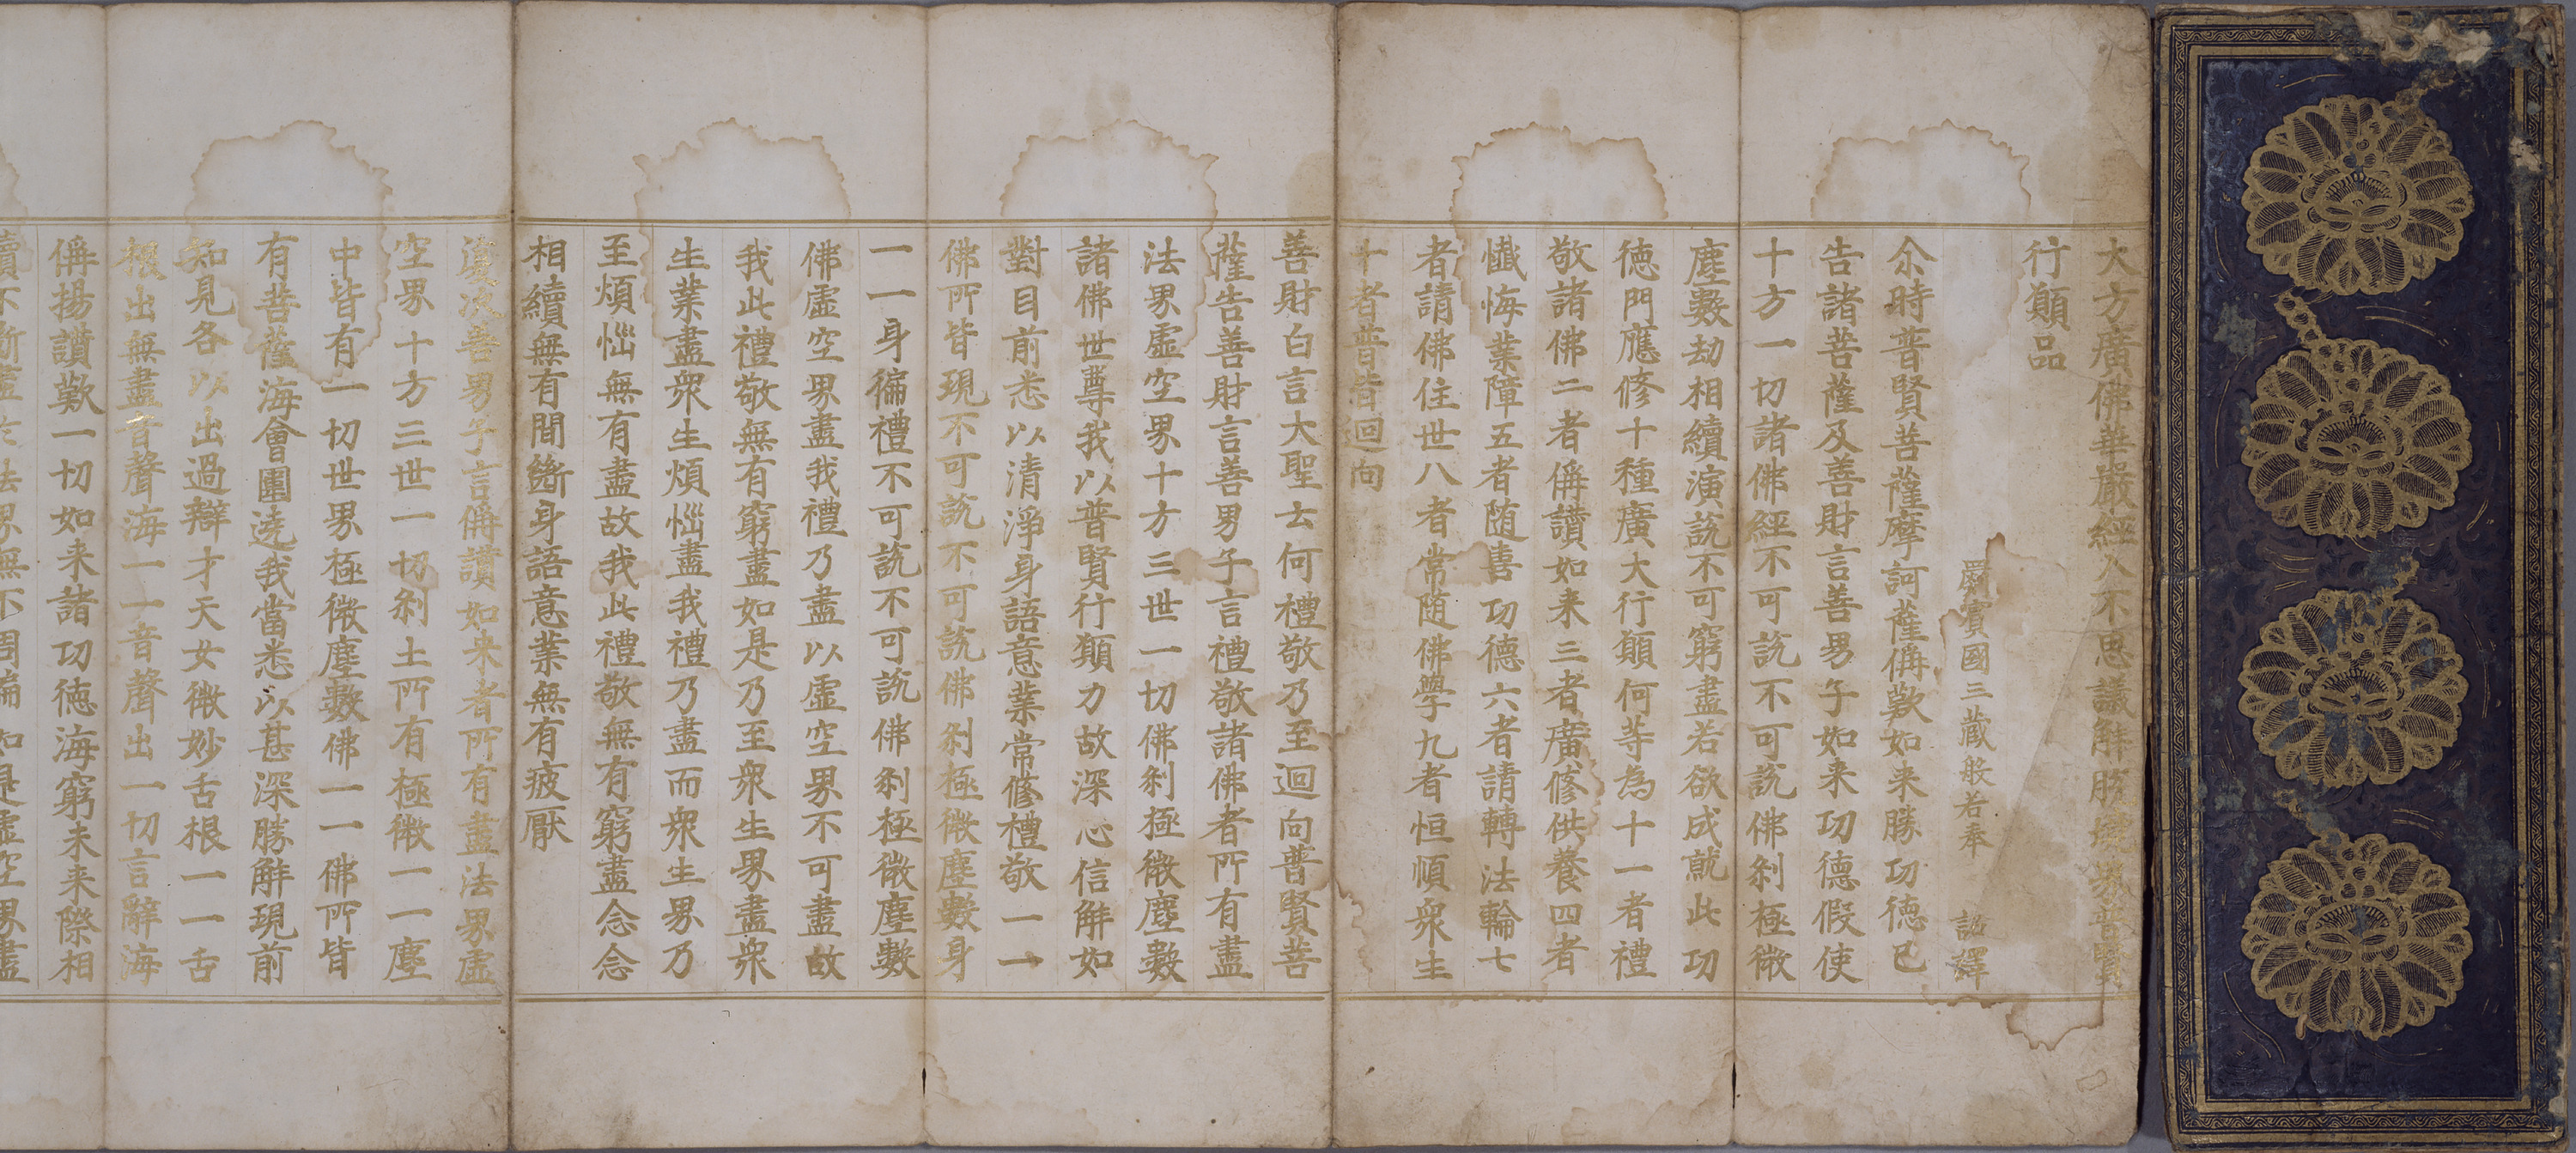 大方廣佛華嚴經入不思議解脫境界普賢
行願品
罽賓國三藏般若奉 詔譯
尒時普賢菩薩摩訶薩偁歎如来勝功德已
告諸菩薩及善財言善男子如来功德假使
十方一切諸佛經不可說不可說佛剎極微
塵數劫相續演說不可窮盡若欲成就此功
德門應修十種廣大行願何等為十一者禮
敬諸佛二者偁讚如来三者廣修供養四者
懺悔業障五者随喜功德六者請轉法輪七
者請佛住世八者常随佛學九者恒順衆生
十者普皆迴向
善財白言大聖云何禮敬乃至迴向普賢菩
薩告善財言善男子言禮敬諸佛者所有盡
法界虛空界十方三世一切佛剎極微塵數
諸佛世尊我以普賢行願力故深心信解如
對目前悉以清淨身語意業常修禮敬一一
佛所皆現不可說不可說佛剎極微塵數身
一一身徧禮不可說不可說佛剎極微塵數
佛虛空界盡我禮乃盡以虛空界不可盡故
我此禮敬無有窮盡如是乃至衆生界盡衆
生業盡衆生煩惱盡我禮乃盡而衆生界乃
至煩惱無有盡故我此禮敬無有窮盡念念
相續無有間斷身語意業無有疲厭
復次善男子言偁讚如来者所有盡法界虛
空界十方三世一切剎土所有極微一一塵
中皆有一切世界極微塵數佛一一佛所皆
有菩薩海會圍遶我當悉以甚深勝解現前
知見各以出過辯才天女微妙舌根一一舌
根出無盡音聲海一一音聲出一切言辭海
偁揚讚歎一切如来諸功德海窮未来際相
續不斷盡於法界無不周徧如是虛空界盡